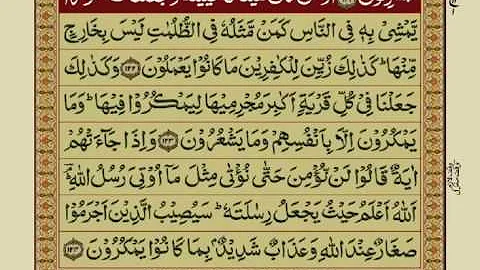 يَّمْشِيْ بِهٖ فِي النَّاسِ كَمَنْ مَّثَلُهٗ فِي الظُّلُمٰتِ لَيْسَ بِخَارِجٍ
مِّنْهَا ؕ كَذٰلِكَ زُيِّنَ لِلْكٰفِرِيْنَ مَا كَانُوْا يَعْمَلُوْنَ ﴿۱۲۲﴾ وَكَذٰلِكَ
جَعَلْنَا فِيْ كُلِّ قَرْيَةٍ اَكٰبِرَ مُجْرِمِيْهَا لِيَمْكُرُوْا فِيْهَا ؕ وَمَا
يَمْكُرُوْنَ اِلَّا بِاَنْفُسِهِمْ وَمَا يَشْعُرُوْنَ ﴿۱۲۳﴾ وَاِذَا جَآءَتْهُمْ
اٰيَةٌ قَالُوْا لَنْ نُّؤْمِنَ حَتّٰى نُؤْتٰى مِثْلَ مَاۤ اُوْتِيَ رُسُلُ اللّٰهِ ؔۘ
اَللّٰهُ اَعْلَمُ حَيْثُ يَجْعَلُ رِسٰلَتَهٗ ؕ سَيُصِيْبُ الَّذِيْنَ اَجْرَمُوْا
صَغَارٌ عِنْدَ اللّٰهِ وَعَذَابٌ شَدِيْدٌۢ بِمَا كَانُوْا يَمْكُرُوْنَ ﴿۱۲۴﴾